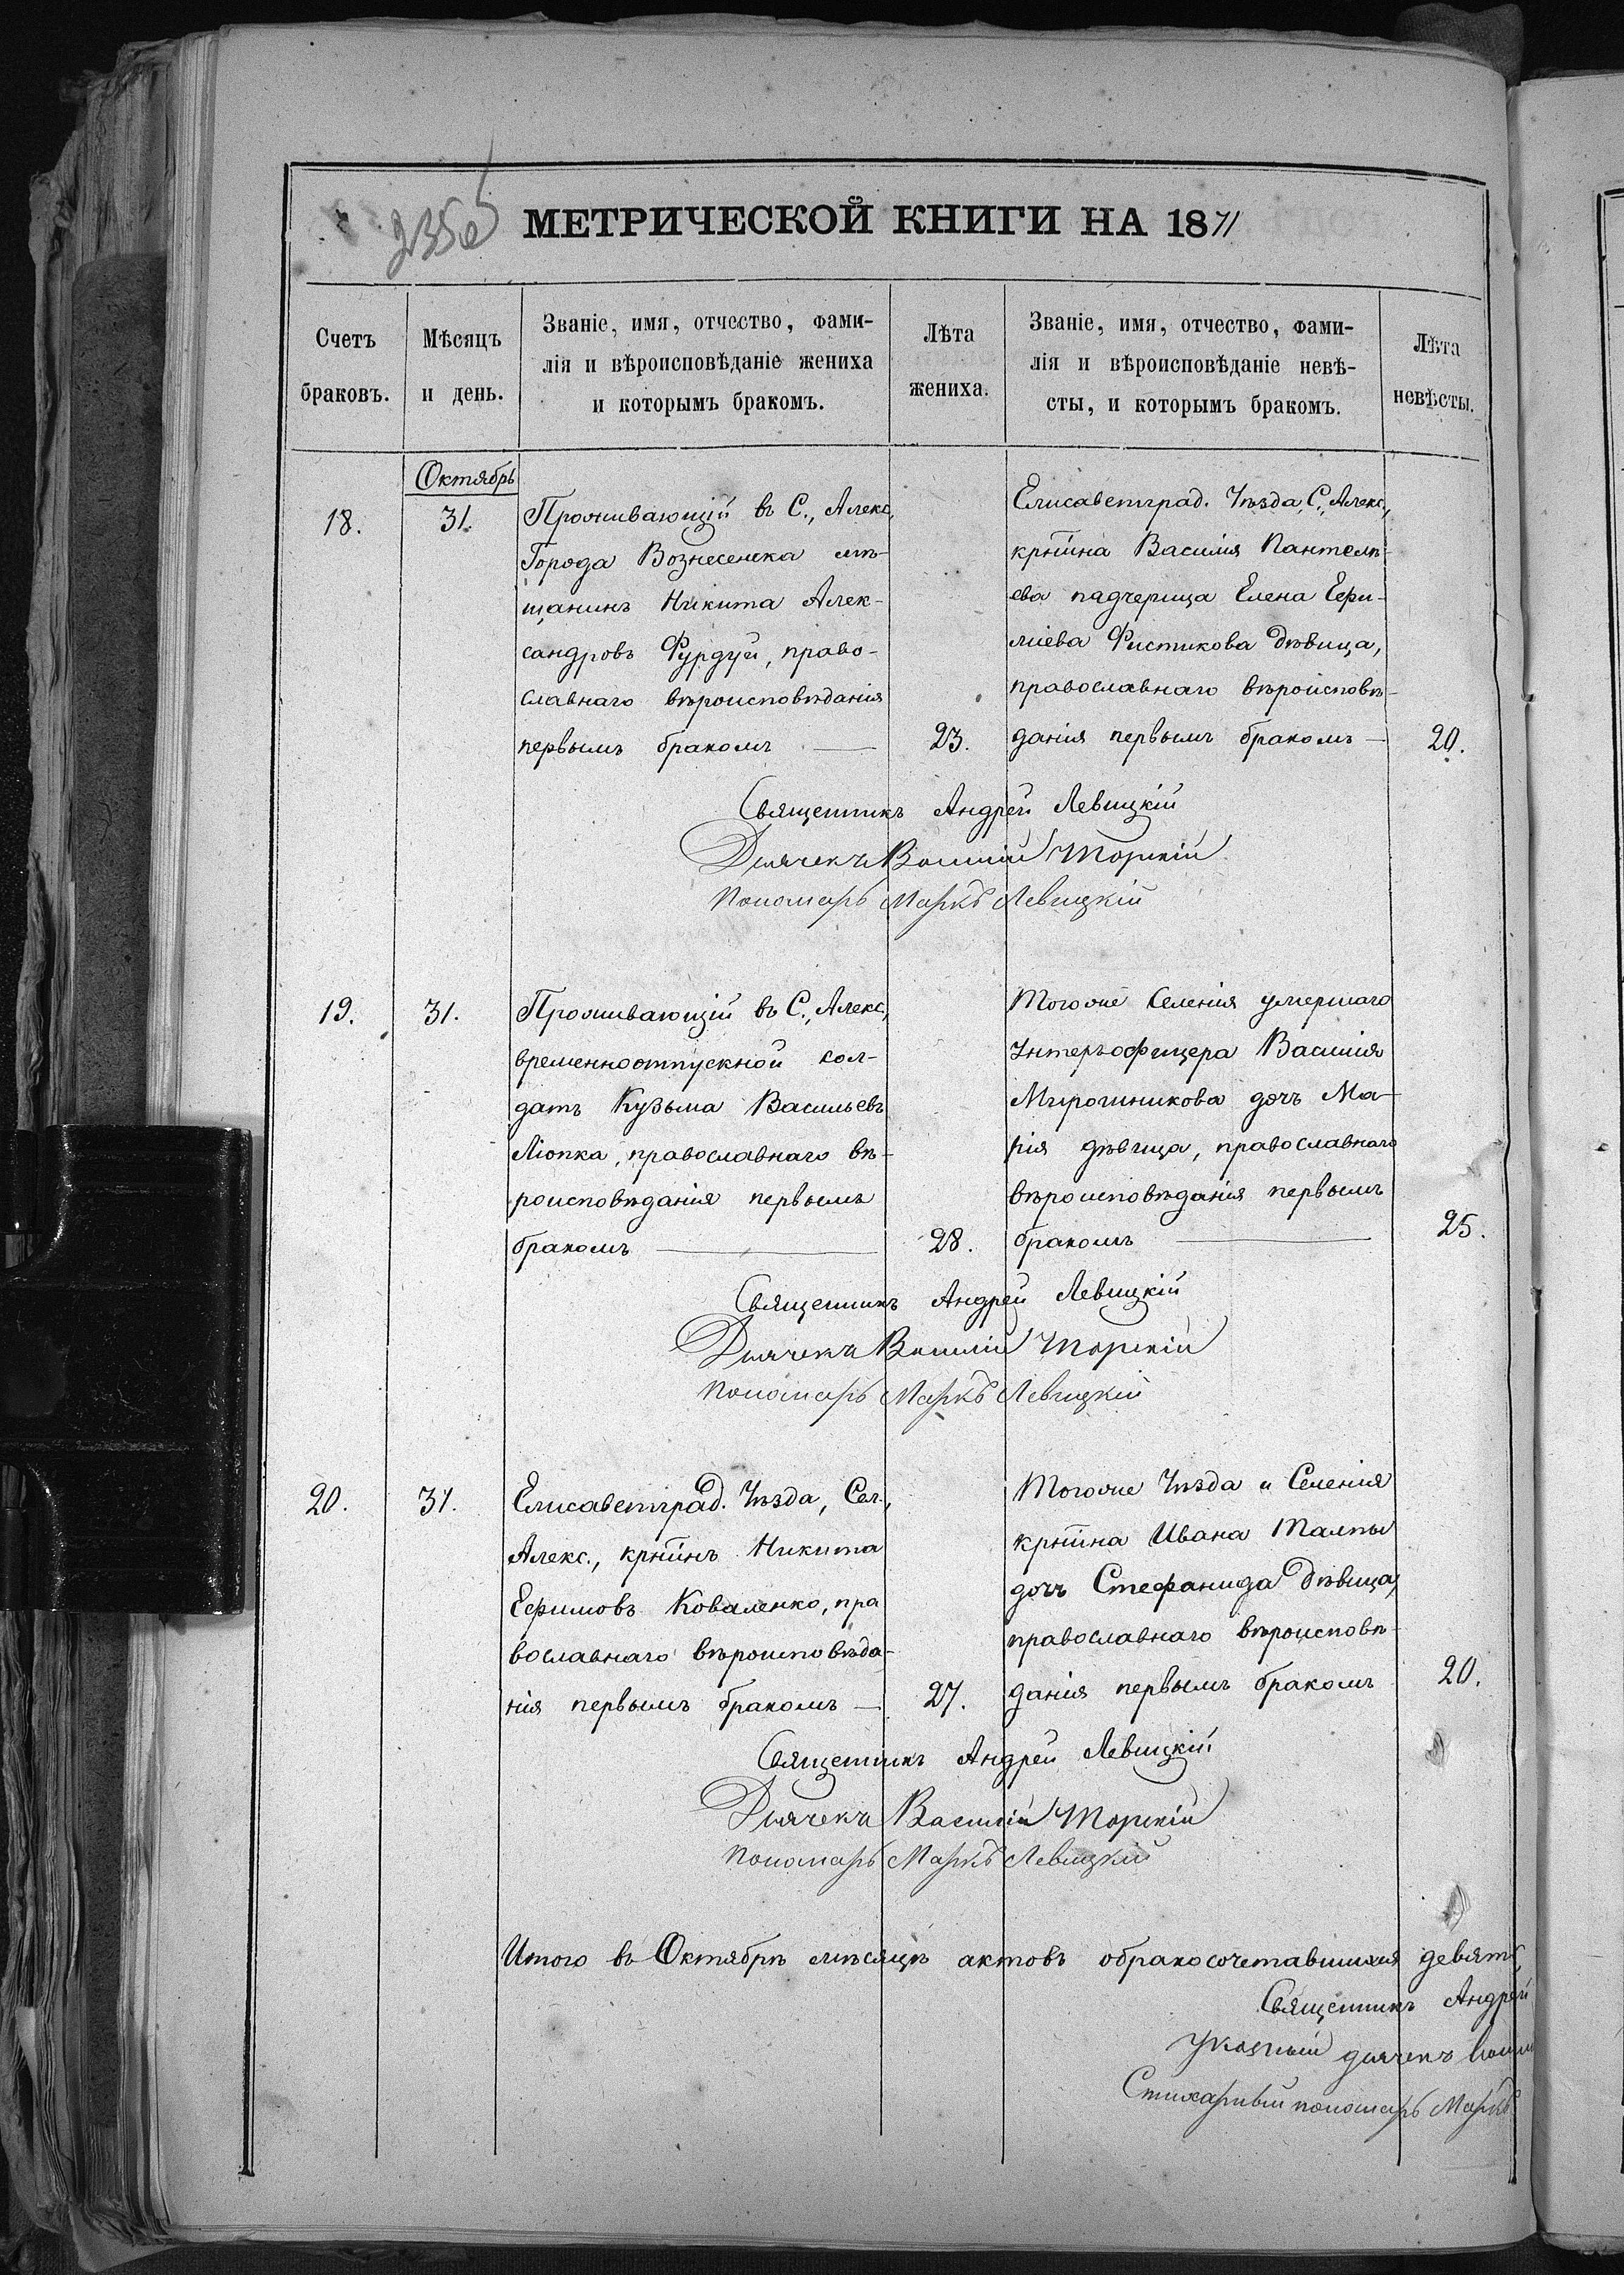 235об
МЕТРИЧЕСКОЙ КНИГИ НА 1871
Счетъ
браковъ.
Мѣсяцъ
и день.
Званіе, имя, отчество, фами-
лія и вѣроисповѣданіе жениха
и которымъ бракомъ.
Лѣта
жениха.
Званіе, имя, отчество, фами-
лія и вѣроисповѣданіе невѣ-
сты, и которымъ бракомъ.
Лѣта
невѣсты.
Октябрь
18.
31.
Проживающій въ С., Алекс,
Города Вознесенска мѣ-
щанинъ Никита Алек-
сандровъ Фурдуй, право-
славнаго вѣроисповѣданія
первымъ бракомъ —
23.
Елисаветград. Уѣзда, С., Алекс.,
крѣтина Василія Пантелѣ-
ева падчерица Елена Ефи-
міева Фистикова дѣвица,
православнаго вѣроисповѣ-
данія первымъ бракомъ —
20.
Священникъ Андрей Левицкій
Дьячекъ Василій Торскій
Пономарь Маркъ Левицкій
19.
31.
Проживающій въ С., Алекс,
временноотпускной сол-
датъ Кузьма Васильевъ
Ліопка, православнаго вѣ-
роисповѣданія первымъ
бракомъ —
28.
Тогоже Селенія умершаго
Унтерьофицера Василія
Мирошникова дочь Ма-
рія дѣвица, православнаго
вѣроисповѣданія первымъ
бракомъ —
25.
Священникъ Андрей Левицкій
Дьячекъ Василій Торскій
Пономарь Маркъ Левицкій
20.
31.
Елисаветград. Уѣзда, Сел.,
Алекс., крѣтинъ Никита
Ефимовъ Коваленко, пра
вославнаго вѣроисповѣда-
нія первымъ бракомъ —
27.
Тогоже Уѣзда и Селенія
крѣтина Ивана Талпы
дочь Стефанида дѣвица,
православнаго вѣроисповѣ-
данія первымъ бракомъ
20.
Священникъ Андрей Левицкій
Дьячекъ Василій Торскій
Пономарь Маркъ Левицкій
Итого въ Октябрѣ мѣсяцѣ актовъ обракосочетавшихся девять,
Священникъ Андрей
Указный дьячекъ Васи
Стихарный пономарь Маркъ